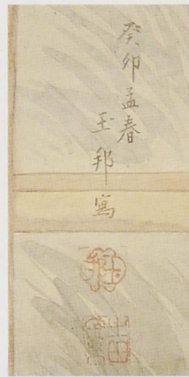 癸卯孟春
玉邦寫